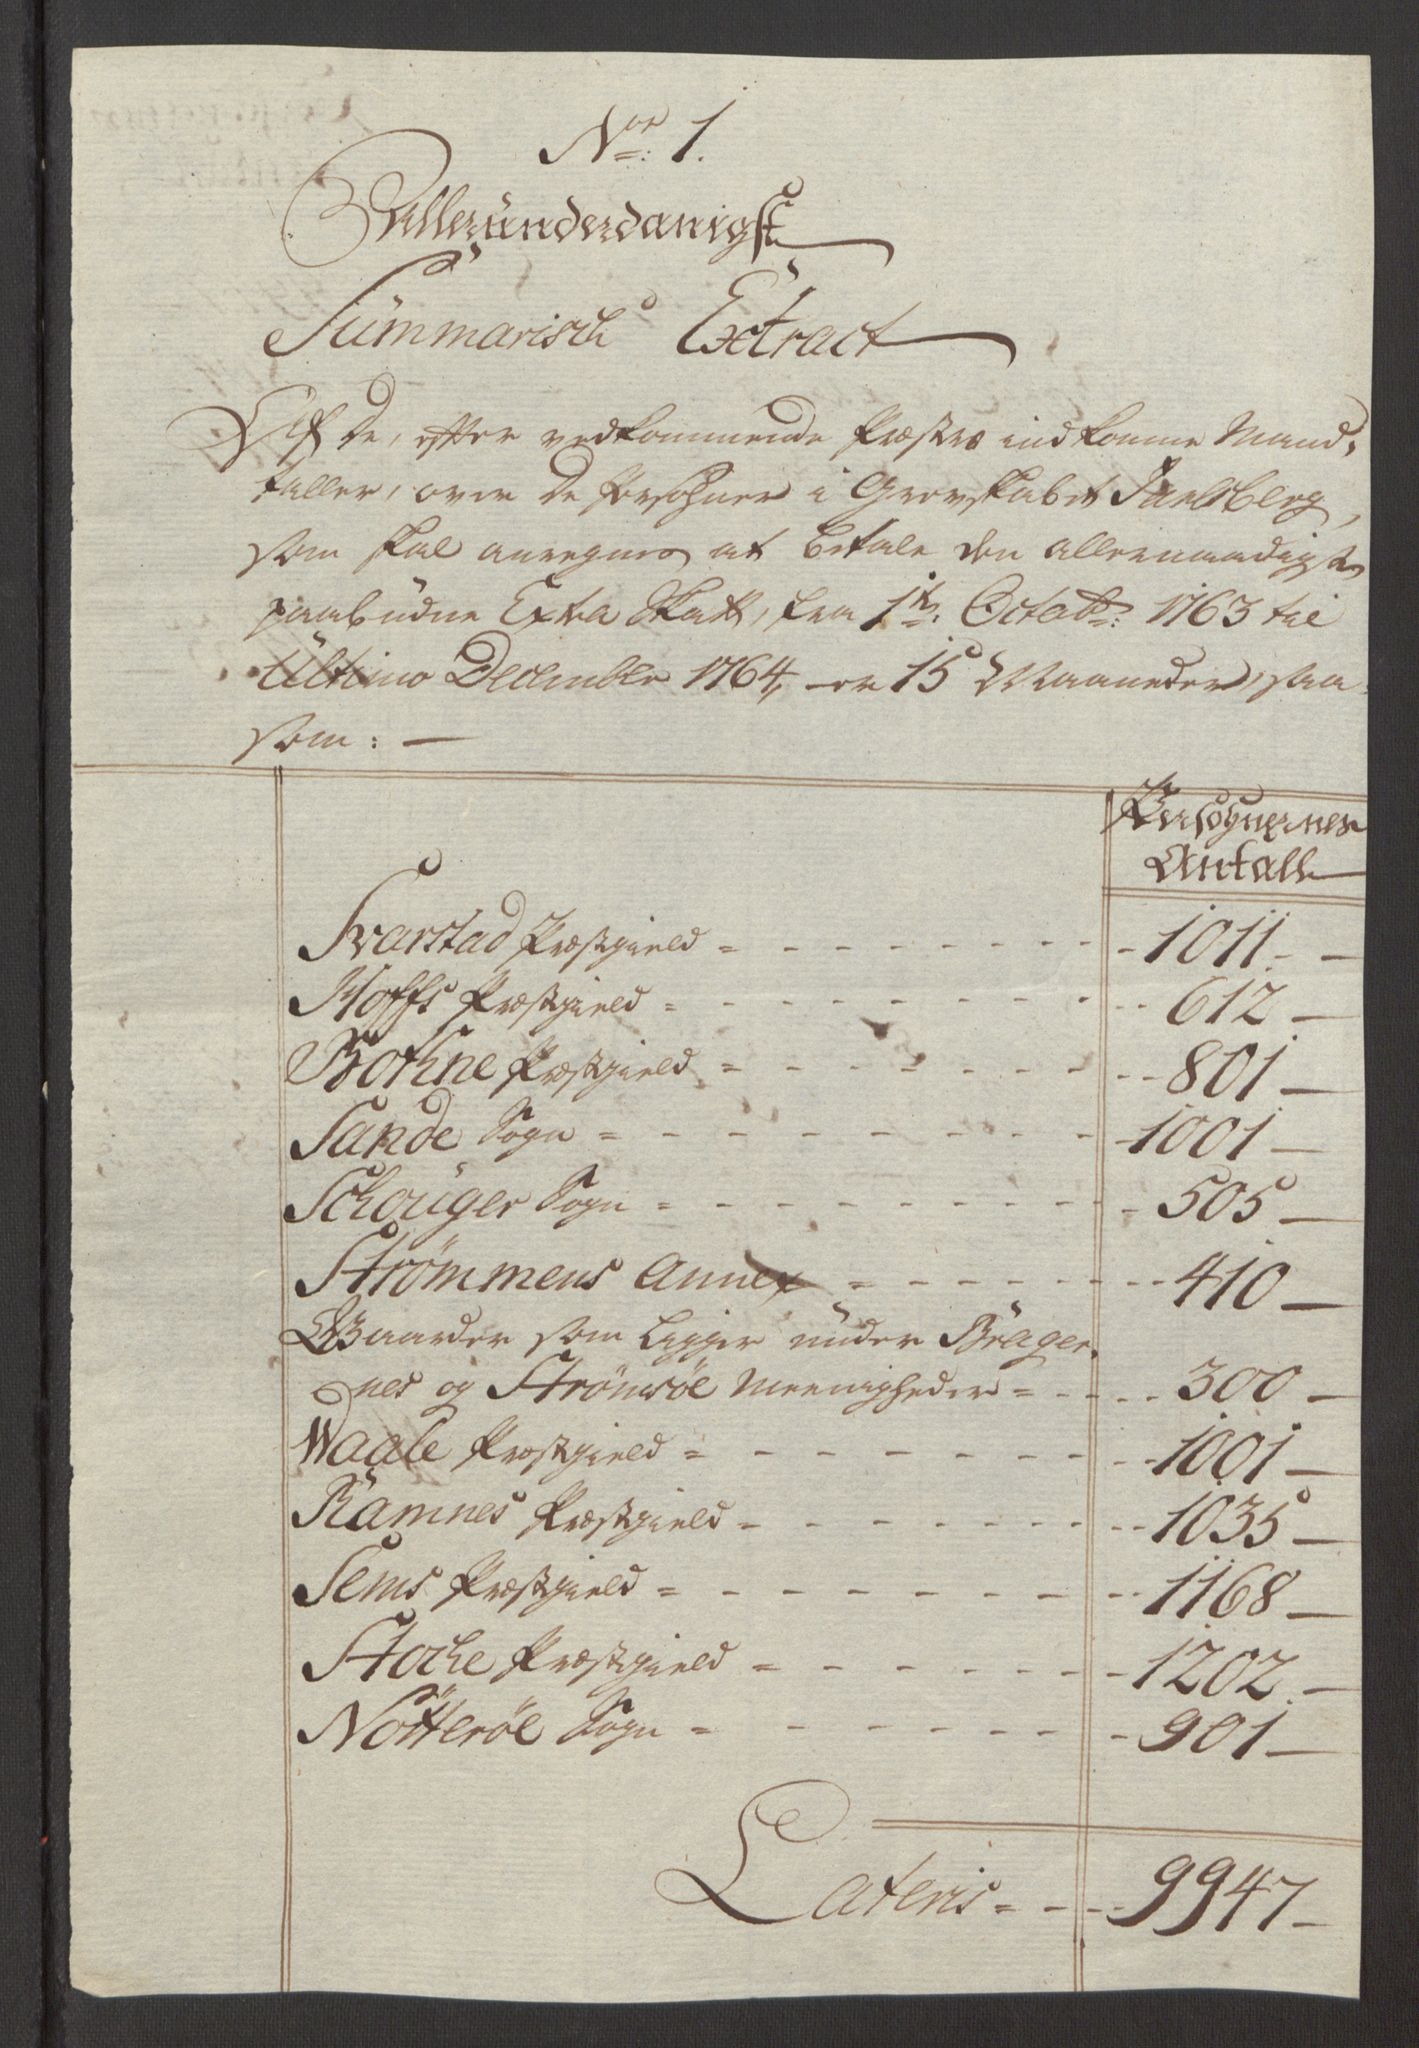 No: 1.
Alleründerdanigst
Summarisch Extract
Af de, efter vedkommende Præsters indkomne Mand-
taller, over de Persohner i Grevskabet Jarlsberg,
som skal anregnes at betale den allernaadigste
paabudne Extra Skatt, fra 1te Octobr: 1763 til
Ultimo December 1764, er 15 Maaneder, saa
som: —
Persohnernes
Antall
Svarstad Præstgield = - - - 1011. —
Hoffs Præstgield = - - - 612 —
Bothne Præstgield = - - - 801 —
Sande Sogn = - - - 1001 —
Schouger Sogn = - - - 505 —
Strømmens Annex = - - - 410 —
Gaarder som ligger under Brager-
nes og Strømsöe Meenigheder = - - - 300 —
Waale Præstgield = - - - 1001 —
Ramnes Præstgield = - - - 1035 —
Sems Præstgield = - - - 1168 —
Stoche Præstgield = - - - 1202. —
Nötteröe Sogn = - - - 901 —
Lateris = - - - 9947 —